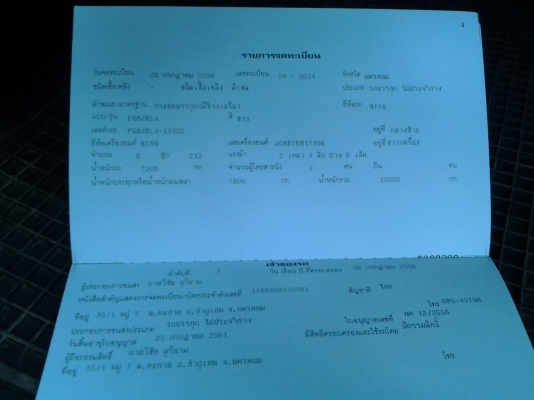 4
รายการจดทะเบียน
วันจดทะเบียน 26 กรกฎาคม 2556 เลขทะเบียน 70 - 5634 จังหวัด นครพนม
ชนิดเชื้อเพลิง - ชนิดเชื้อเพลิง ดีเซล ประเภท รถบรรทุก ไม่ประจำทาง
ลักษณะ/มาตรฐาน กระบะบรรทุก(มีข้างเสริม) ยี่ห้อรถ HINO
แบบ/รุ่น FG8JRLA สี ขาว
เลขตัวรถ FG8JRLA-12922 อยู่ที่ กลางซ้าย
ยี่ห้อเครื่องยนต์ HINO เลขเครื่องยนต์ อยู่ที่ ขวาเครื่อง
จำนวน 6 สูบ 212 แรงม้า 2 เพลา 4 ล้อ ยาง 6 เส้น
น้ำหนักรถ 7200 กก. จำนวนผู้โดยสารนั่ง 2 คน ยืน คน
น้ำหนักบรรทุกหรือน้ำหนักลงเพลา 7800 กก. น้ำหนักรวม 15000 กก.
เจ้าของรถ
ลำดับที่ 1 วัน เดือน ปี ที่ครอบครอง 26 กรกฎาคม 2556
ผู้ประกอบการขนส่ง นายวิชัย สุริผาม
หนังสือสำคัญแสดงการจดทะเบียน/บัตรประจำตัวเลขที่ สัญชาติ ไทย
ที่อยู่ 35/1 หมู่ 7 จ.นครพนม โทร
ประกอบการขนส่งประเภท รถบรรทุก ไม่ประจำทาง ใบอนุญาตเลขที่ นพ 12/2556
วันสิ้นอายุใบอนุญาต 25 กรกฎาคม 2561 มีสิทธิครอบครองและใช้รถโดย มีกรรมสิทธิ์
ผู้ถือกรรมสิทธิ์ นายวิชัย สุริผาม
ที่อยู่ 35/1 หมู่ 7 จ.นครพนม โทร